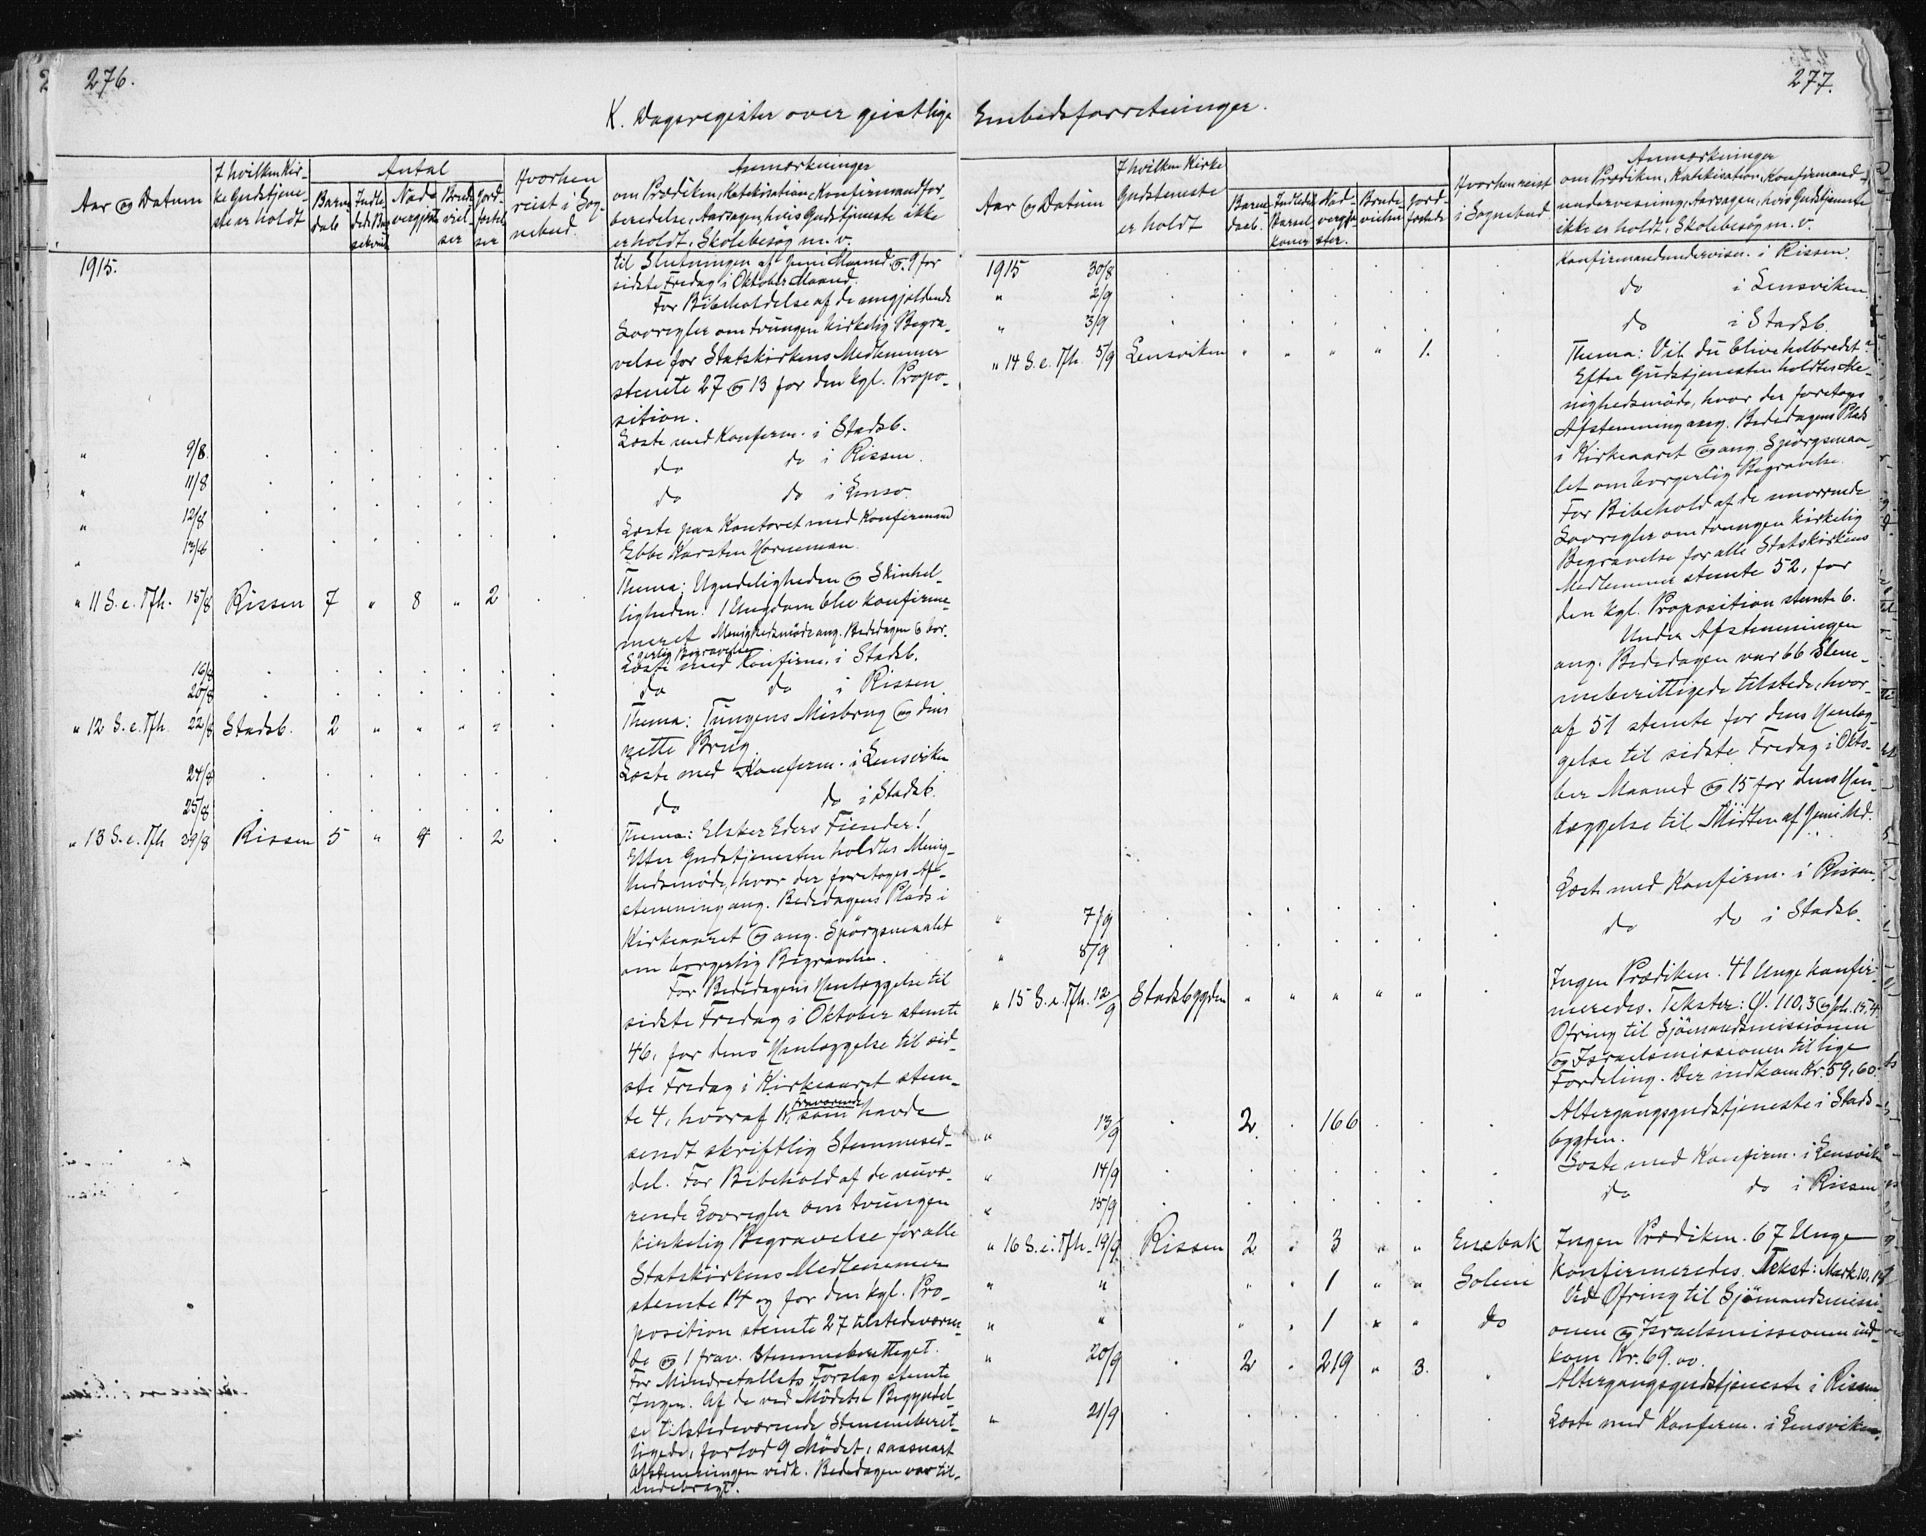 276.
K. Dagsregister over geistlige
Aar og Datum
I hvilken Kir-
ke Gudstjene-
ste er holdt
Antal
Barne
daab
Nad-
Hvorhen
reist i Sog-
nebud.
Anmærkninger
om Prædiken, Katekisation, Konfirmandfor-
beredelse, Aarsagen, hvis Gudstjeneste ikke
er holdt, Skolebesøg m. v.
1915.
til Slutningen af Juni Maaned og 9 for
sidste Fredag i Oktober Maaned.
For Bibeholdelse af de nugjældende
Lovregler om tvungen kirkelig Begra-
velse for Statskirkens Medlemmer
stemte 27 og 13 for den kgl. Propo-
sition.
" 9/8. Læste med Konfirm. i Stadsb.
" 11/8 do do i Rissen.
" 12/8 do do i Lensv.
" 13/8 Læste paa Kontoret med Konfirmand
Ebbe Karsten Horneman.
" 11 S. e. Tfh. 15/8 Rissen 7 " 8 " 2 Thema: Ugudeligheden og Skinhel-
ligheden. 1 Ungdom blev konfirme-
meret Menighedsmøde ang. Bededagen og bor-
gerlig Begravelse.
16/8 Læste med Konfirm. i Stadsb.
20/8 do do i Rissen
" 12 S. e. Tfh. 22/8 Stadsb. 2 " " " " Thema: Tungens Misbrug og dens
rette Brug.
24/8 Læste med Konfirm. i Lensviken
25/8 do do i Stadsb.
" 13 S. e. Tfh 29/8 Rissen 5 " 4 . 2 Thema: Elsker Eders Fiender!
Efter Gudstjenesten holdtes Menig-
hedsmøde, hvor der foretoges Af-
stemning ang. Bededagens Plads i
Kirkeaaret og ang. Spørgsmaalet
om borgerlig Begravelse.
For Bededagens Henlæggelse til
sidste Fredag i Oktober stemte
46, for dens Henlæggelse til sid-
ste Fredag i Kirkeaaret stem-
te 4, hvoraf 1, Fraværende som havde
sendt skriftlig Stemmesed-
del. For Bibehold af de nuvæ-
rende Lovregler om tvungen
kirkelig Begravelse for alle
Statskirkens Medlemmer
stemte 14 og for den kgl. Pro-
position stemte 27 tilstedeværen-
de og 1 frav. Stemmeberettiget.
For Mindretallets Forslag stemte
Ingen. Af de ved Mødets Begyndel-
se tilstedeværende Stemmeberet-
tigede, forlod 9 Mødet, saasnart
Afstemningen vedk. Bededagen var til-
endebragt.
277.
Embedsforretninger.
Aar og Datum
I hvilken Kirke
Gudstjeneste
er holdt
Barne
daab.
Indledte
Barsel-
koner
Nad-
vergje-
ster.
Brude
vielser
Jord-
fæstede
Hvorhen reist
i Sognebud.
Anmærkninger
om Prædiken, Katekisation, Konfirmand-
undervisning, Aarsagen, hvis Gudstjeneste
ikke er holdt, Skolebesøg m. v.
1915 30/8 Konfirmandundervisn. i Rissen.
" 2/9 do i Lensviken
" 3/9 do i Stadsb.
" 14 S. e. Tfh. 5/9 Lensviken " " " " 1. Thema: Vil du blive helbredet?
Efter Gudstjenesten holdtes Me-
nighedsmøde, hvor der foretoges
Afstemning ang. Bededagens Plads
i Kirkeaaret og ang. Spørgsmaa-
let om borgerlig Begravelse.
For Bibehold af de nuværende
Lovregler om tvungen kirkelig
Begravelse for alle Statskirkens
Medlemmer stemte 52, for
den kgl. Proposition stemte 6.
Under Afstemningen
ang. Bededagen var 66 Stem-
meberettigede tilstede, hvor-
af 51 stemte for dens Henlæg-
gelse til sidste Fredag i Okto-
ber Maaned og 15 for dens Hen-
læggelse til Midten af Juni Md.
" 7/9 Læste med Konfirm. i Rissen.
" 8/9 do do i Stadsb.
" 15 S. e. Tfh. 12/9 Stadsbygden " " " " " Ingen Prædiken. 41 Unge konfir-
meredes. Tekster: Ps. 110,3
Ofring til Sjømandsmissionen
og Israelsmissionen til lige
Fordeling. Der indkom Kr. 59,60.
" 13/9 2. . 166 Altergangsgudstjeneste i Stads-
bygden.
" 14/9 Læste med Konfirm. i Lensviken
" 15/9 do do i Rissen
" 16 S. e. Tfh. 19/9 Rissen 2 " 3 " " Enebak Ingen Prædiken. 67 Unge
" " " " 1 " " Solem konfirmeredes. Tekst: Mark 10,
Ved Ofring til Sjømandsmissi-
" " " " 1 " " do onen og Israelsmissionen ind-
kom Kr. 69.00.
" 20/9 2 " 219 " 3. " Altergangsgudstjeneste i Rissen
" 21/9 Læste med Konfirm. i Lensviken.